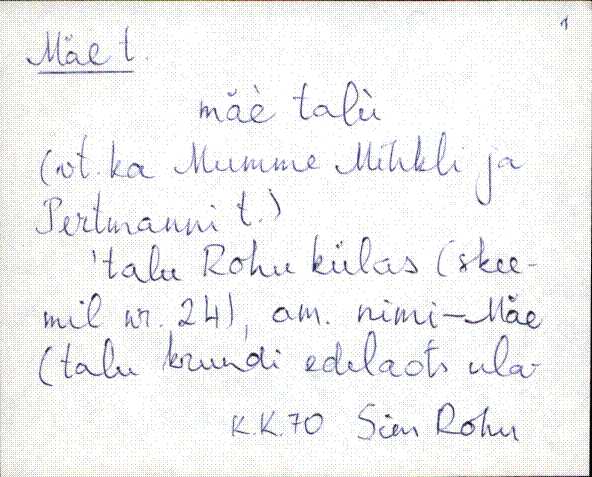 1
Mäe t.
mäè talù
(vt. ka Mumme Mihkli ja
Pertmanni t.)
'talu Rohu külas (skee-
mil nr. 24), am. nimi – Mäe
(talu krundi edelaots ula-
K.K.70 Sim Rohu